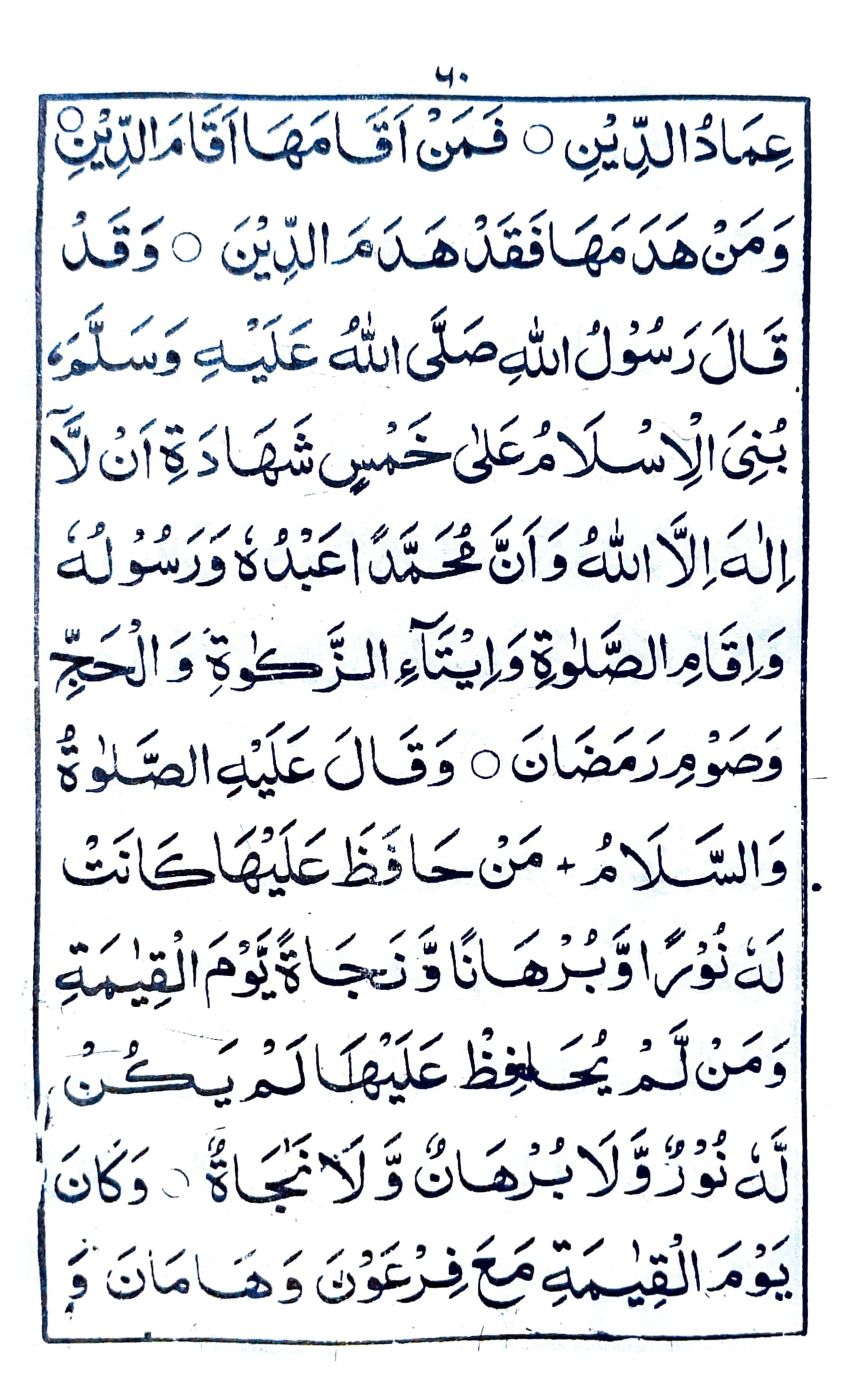 ٦٠
عِمَادُ الدِّيْنِ ○ فَمَنْ اَقَامَهَا اَقَامَ الدِّيْنِ ○
وَمَنْ هَدَمَهَا فَقَدْ هَدَمَ الدِّيْنَ ○ وَقَدْ
قَالَ رَسُوْلُ اللّٰهِ صَلَّى اللّٰهُ عَلَيْهِ وَسَلَّمَ،
بُنِىَ الْاِسْلَامُ عَلٰى خَمْسٍ شَهَادَةِ اَنْ لَّآ
اِلٰهَ اِلَّا اللّٰهُ وَاَنَّ مُحَمَّدًا عَبْدُهٗ وَرَسُوْلُهٗ
وَاِقَامِ الصَّلٰوةِ وَاِيْتَآءِ الزَّكٰوةِ وَالْحَجِّ
وَصَوْمِ رَمَضَانَ ○ وَقَالَ عَلَيْهِ الصَّلٰوةُ
وَالسَّلَامُ + مَنْ حَافَظَ عَلَيْهَا كَانَتْ
لَهٗ نُوْرًا وَّبُرْهَانًا وَّنَجَاةً يَّوْمَ الْقِيٰمَةِ
وَمَنْ لَّمْ يُحَافِظْ عَلَيْهَا لَمْ يَكُنْ
لَّهٗ نُوْرٌ وَّلَا بُرْهَانٌ وَّلَا نَجَاةٌ ○ وَكَانَ
يَوْمَ الْقِيٰمَةِ مَعَ فِرْعَوْنَ وَهَامَانَ وَ